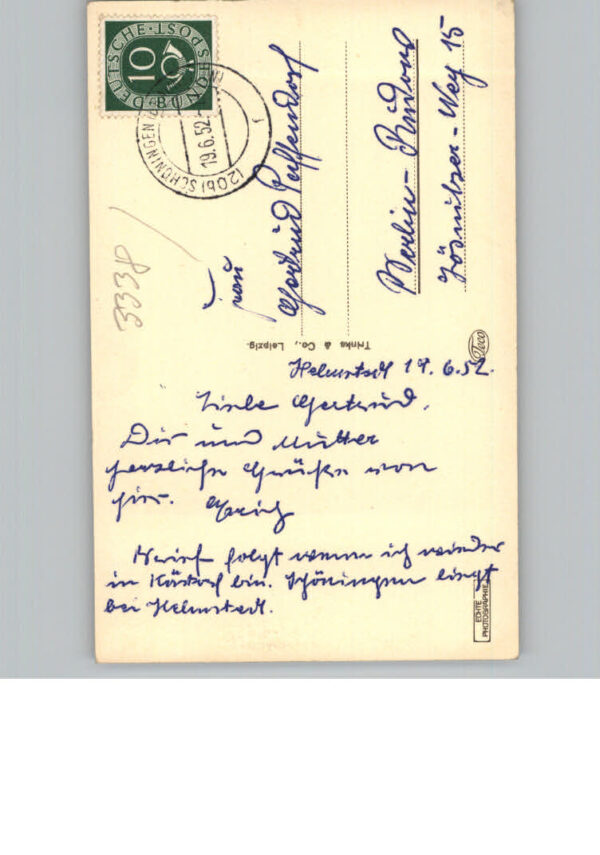 DEUTSCHE BUNDESPOST
10
(20b) SCHÖNINGEN
19.6.52
3338
Frau
Gertrud
Berlin-Rudow
Weg 15
Trinks & Co., Leipzig.
Teco
Helmstedt 19.6.52.
Liebe Gertrud,
Dir und Mutter
herzliche Grüße von
hier. Erich
Brief folgt wenn ich wieder
in bin. Schöningen liegt
bei Helmstedt.
ECHTE
PHOTOGRAPHIE